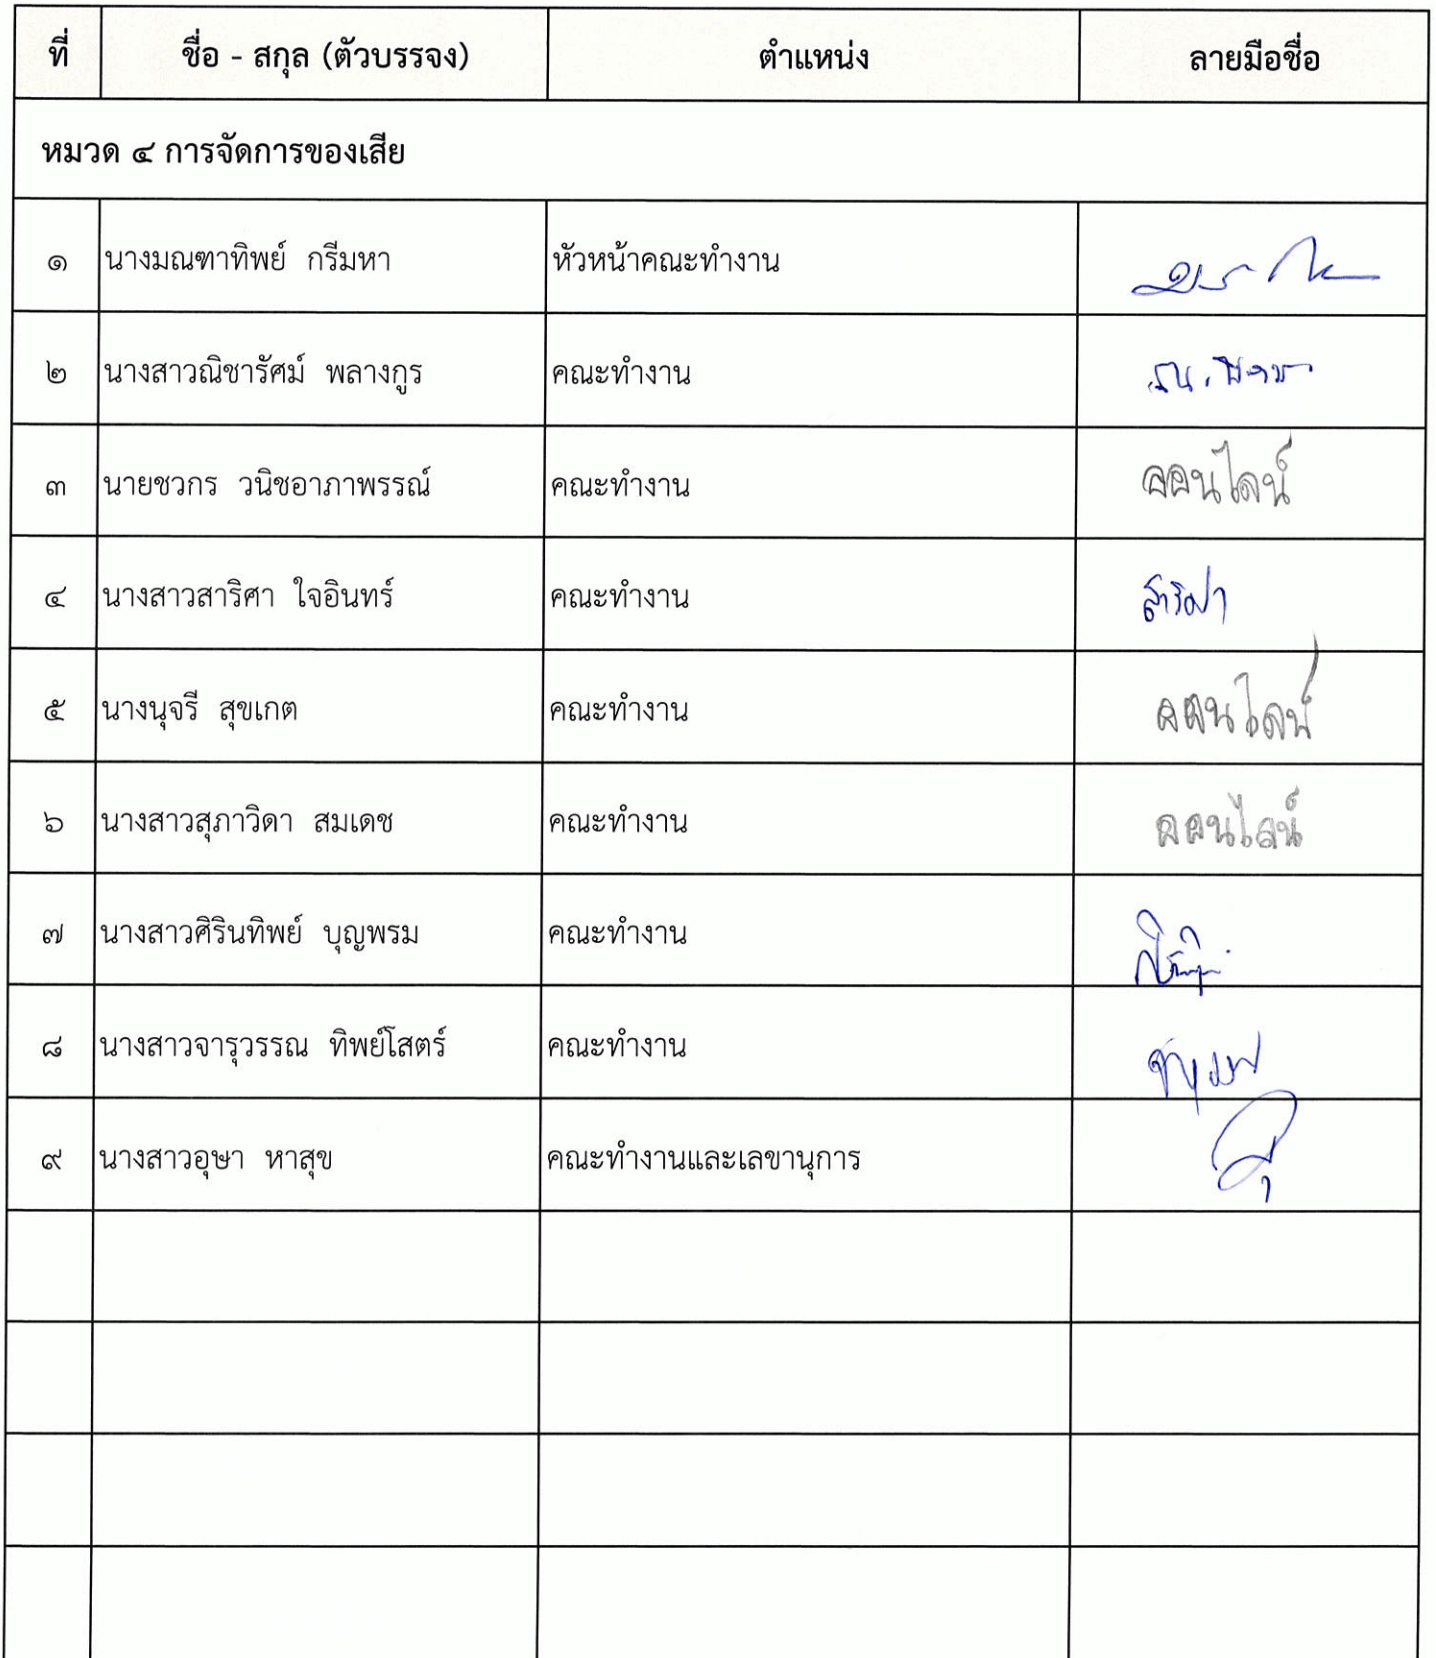 ที่ ชื่อ - สกุล (ตัวบรรจง) ตำแหน่ง ลายมือชื่อ
หมวด ๔ การจัดการของเสีย
๑ นางมณฑาทิพย์ กรีมหา หัวหน้าคณะทำงาน
๒ นางสาวณิชารัศม์ พลางกูร คณะทำงาน
๓ นายชวกร วนิชอาภาพรรณ์ คณะทำงาน ออนไลน์
๔ นางสาวสาริศา ใจอินทร์ คณะทำงาน สาริศา
๕ นางนุจรี สุขเกต คณะทำงาน ออนไลน์
๖ นางสาวสุภาวิดา สมเดช คณะทำงาน ออนไลน์
๗ นางสาวศิรินทิพย์ บุญพรม คณะทำงาน
๘ นางสาวจารุวรรณ ทิพย์โสตร์ คณะทำงาน
๙ นางสาวอุษา หาสุข คณะทำงานและเลขานุการ